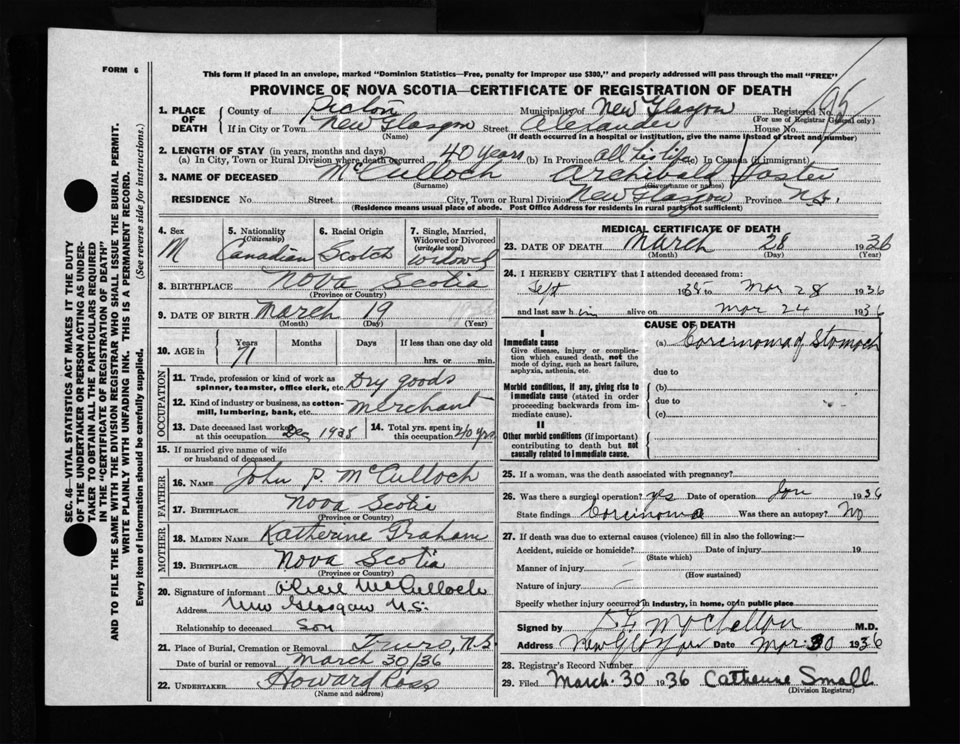 FORM 6
This form if placed in an envelope, marked "Dominion Statistics—Free, penalty for improper use $300," and properly addressed will pass through the mail "FREE"
PROVINCE OF NOVA SCOTIA—CERTIFICATE OF REGISTRATION OF DEATH
1. PLACE OF DEATH
County of Pictou Municipality of New Glasgow Registered No.
(For use of Registrar General only)
If in City or Town New Glasgow Street Alexander House No.
(Name) (If death occurred in a hospital or institution, give the name instead of street and number)
2. LENGTH OF STAY (in years, months and days)
(a) In City, Town or Rural Division where death occurred 40 years (b) In Province all his life (c) In Canada (if immigrant)
3. NAME OF DECEASED McCulloch Archibald
(Surname) (Given name or names)
RESIDENCE No. Street City, Town or Rural Division New Glasgow Province N.S.
(Residence means usual place of abode. Post Office Address for residents in rural parts not sufficient)
4. Sex M
5. Nationality (Citizenship) Canadian
6. Racial Origin Scotch
7. Single, Married, Widowed or Divorced (write the word) widowed
8. BIRTHPLACE Nova Scotia
(Province or Country)
9. DATE OF BIRTH March 19
(Month) (Day) (Year)
10. AGE in Years 71 Months Days If less than one day old hrs. or min.
OCCUPATION
11. Trade, profession or kind of work as spinner, teamster, office clerk, etc. Dry goods
12. Kind of industry or business, as cotton-mill, lumbering, bank, etc. Merchant
13. Date deceased last worked at this occupation Dec 1935
14. Total yrs. spent in this occupation 40 yrs
15. If married give name of wife or husband of deceased
FATHER
16. NAME John P. McCulloch
17. BIRTHPLACE Nova Scotia
(Province or Country)
MOTHER
18. MAIDEN NAME Katherine Graham
19. BIRTHPLACE Nova Scotia
(Province or Country)
20. Signature of informant McCulloch
Address New Glasgow N.S.
Relationship to deceased Son
21. Place of Burial, Cremation or Removal Truro, N.S.
Date of burial or removal March 30/36
22. UNDERTAKER Howard Ross
(Name and address)
MEDICAL CERTIFICATE OF DEATH
23. DATE OF DEATH March 28 1936
(Month) (Day) (Year)
24. I HEREBY CERTIFY that I attended deceased from:
Sept 1935 to Mar 28 1936
and last saw him alive on Mar 24 1936
CAUSE OF DEATH
I
Immediate cause
Give disease, injury or complication which caused death, not the mode of dying, such as heart failure, asphyxia, asthenia, etc.
(a) Carcinoma of Stomach
due to
Morbid conditions, if any, giving rise to immediate cause (stated in order proceeding backwards from immediate cause).
(b)
due to
(c)
II
Other morbid conditions (if important) contributing to death but not causally related to immediate cause.
25. If a woman, was the death associated with pregnancy?
26. Was there a surgical operation? yes Date of operation Jan 1936
State findings Carcinoma Was there an autopsy? No
27. If death was due to external causes (violence) fill in also the following:—
Accident, suicide or homicide? Date of injury 19
(State which)
Manner of injury
(How sustained)
Nature of injury
Specify whether injury occurred in industry, in home, or in public place
Signed by M.D.
Address New Glasgow Date Mar 30 1936
28. Registrar's Record Number
29. Filed March 30 1936 Catherine Small
(Division Registrar)
SEC. 46—VITAL STATISTICS ACT MAKES IT THE DUTY
OF THE UNDERTAKER OR PERSON ACTING AS UNDER-
TAKER TO OBTAIN ALL THE PARTICULARS REQUIRED
IN THE "CERTIFICATE OF REGISTRATION OF DEATH"
AND TO FILE THE SAME WITH THE DIVISION REGISTRAR WHO SHALL ISSUE THE BURIAL PERMIT.
WRITE PLAINLY WITH UNFADING INK. THIS IS A PERMANENT RECORD.
Every item of information should be carefully supplied. (See reverse side for instructions.)